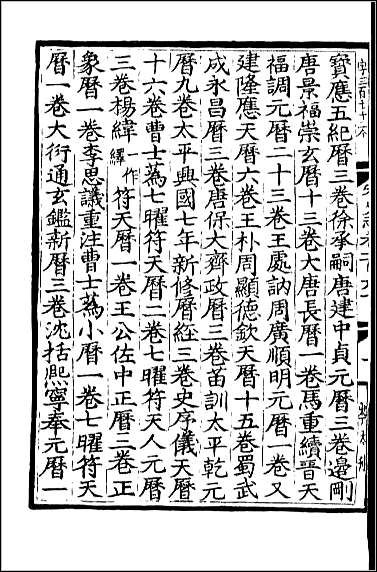 寶應五紀曆三卷徐承嗣唐建中貞元曆三卷邊剛
唐景福崇玄曆十三卷大唐長曆一卷馬重績晉天
福調元曆二十三卷王處訥周廣順明元曆一卷又
建隆應天曆六卷王朴周顯德欽天曆十五卷蜀武
成永昌曆三卷唐保大齊政曆三卷苗訓太平乾元
曆九卷太平興國七年新修曆經三卷史序儀天曆
十六卷曹士蒍七曜符天曆二卷七曜符天人元曆
三卷楊緯一作繹符天曆一卷王公佐中正曆三卷正
象曆一卷李思議重注曹士蒍小曆一卷七曜符天
曆一卷大衍通玄鑑新曆三卷沈括熙寧奉元曆一